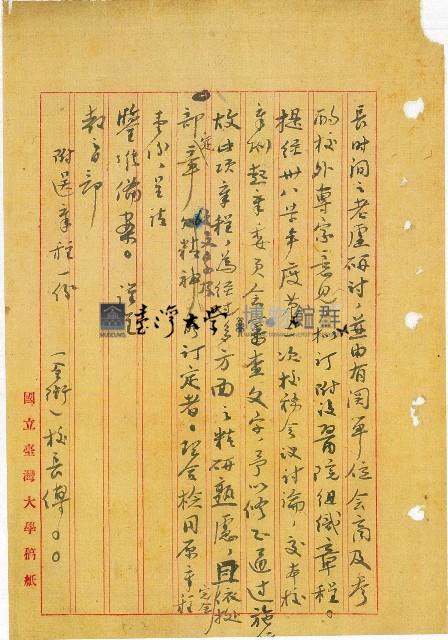 長时间之考慮研討，並由有関單位会商及参
酌校外專家意見拟訂附設醫院組織章程。
提经卅八學年度第 次校務会议討論，交本校
章則起草委員会審查文字，予以修正通过施行
故此項章程，為经过多方面之精研熟慮，且完全依據
部定章 精神 訂定者。理合檢同原章程
壹份，呈請
鑒准備案。謹呈
教育部
附呈章程一份
（全銜）校長傅。。
國立臺灣大學稿紙
臺灣大學 博物館群
MUSEUMS